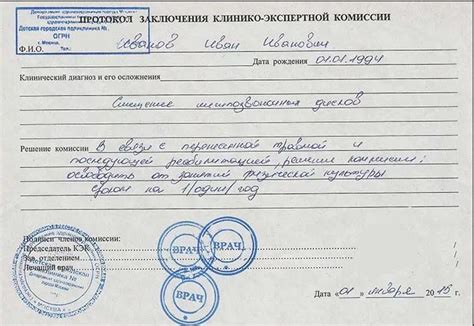 ПРОТОКОЛ ЗАКЛЮЧЕНИЯ КЛИНИКО-ЭКСПЕРТНОЙ КОМИССИИ
Детская городская поликлиника №
ОГРН
г. Москва,
Тел.:
Ф.И.О. Иванов Иван Иванович
Дата рождения 01.01.1994
Клинический диагноз и его осложнения
Смещение межпозвоночных дисков
Решение комиссии В связи с перенесенной травмой и
последующей реабилитацией решили комиссии:
освободить от занятий физической культуры
сроком на 1/один/год
Подписи членов комиссии:
Председатель КЭК
Зав. отделением
Лечащий врач
ВРАЧ
ВРАЧ
ВРАЧ
Дата «01» января 2015 г.